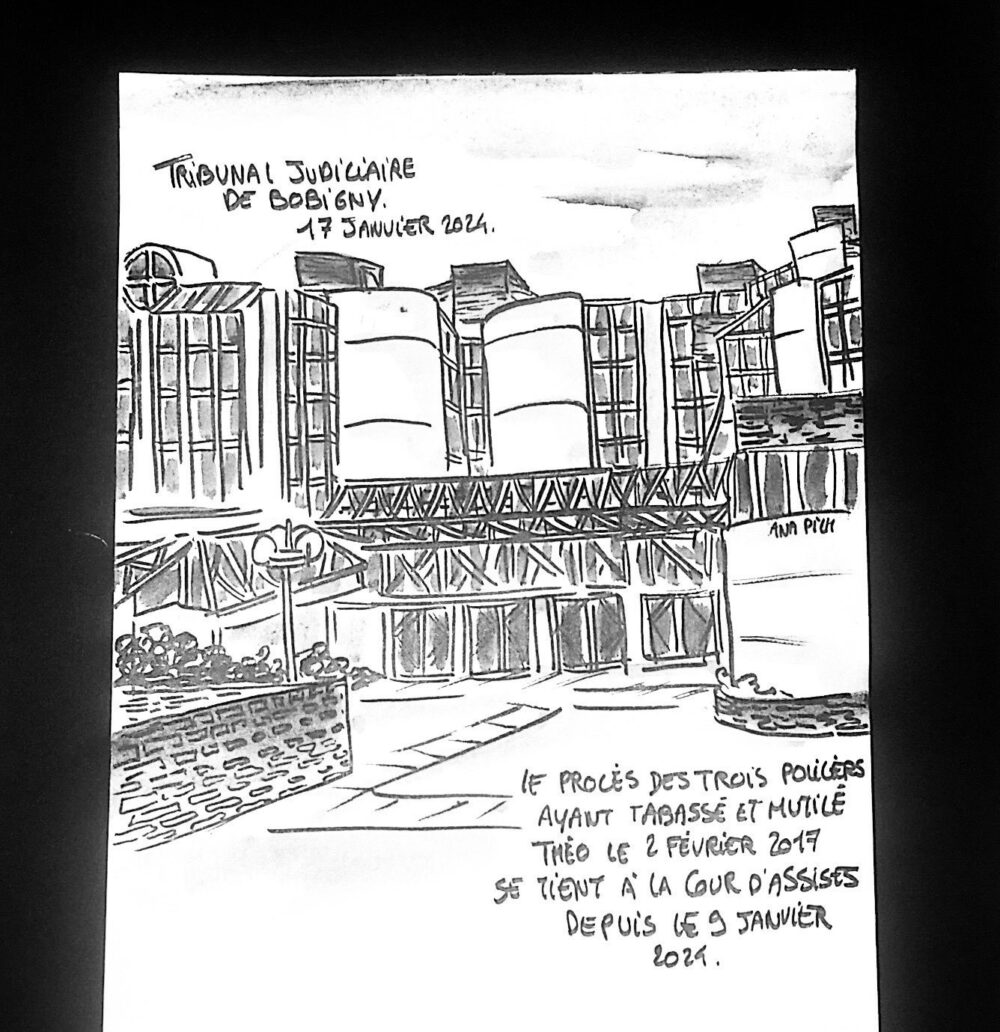 TRIBUNAL JUDICIAIRE
DE BOBIGNY.
17 JANVIER 2024.
ANA PICH
LE PROCÈS DES TROIS POLICIERS
AYANT TABASSÉ ET MUTILÉ
THÉO LE 2 FÉVRIER 2017
SE TIENT À LA COUR D'ASSISES
DEPUIS LE 9 JANVIER
2024.